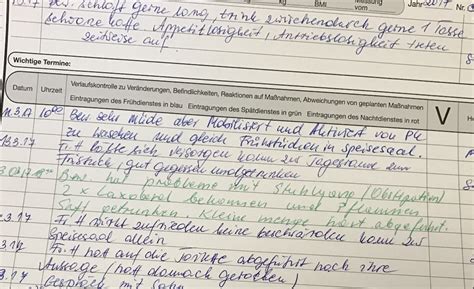 kg BMI Messung vom Jahr 2017 Nr.
Bew. schläft gerne lang, trink zwischendurch gerne 1 Tasse
schwarze Kaffe Appetitlosigkeit, Antriebslosigkeit treten
zeitweise auf. S.
Wichtige Termine:
Datum Uhrzeit Verlaufskontrolle zu Veränderungen, Befindlichkeiten, Reaktionen auf Maßnahmen, Abweichungen von geplanten Maßnahmen
Eintragungen des Frühdienstes in blau Eintragungen des Spätdienstes in grün Eintragungen des Nachtdienstes in rot V
Bew sehr müde aber Mobilisirt und Aktiviert von PK
zu waschen und gleich Frühstücken in Speisesaal.
Fr. H hatte sich versorgen kamm zur Tagesraum zum
Frühstük, gut gegessen und getrunken
Bew hat probleme mit Stuhlgang (Obstipation)
2 x Laxoberal bekommen und Pflaumen
Saft getrunken kleine menge hart abgeführt.
Fr. H wirkt zufrieden keine beschwerden kamm zur
Speisesaal allein
Fr. H hatt auf die Toilette abgeführt nach ihre
Aussage (hatt danach gerochen)
Gespräch mit Sohn